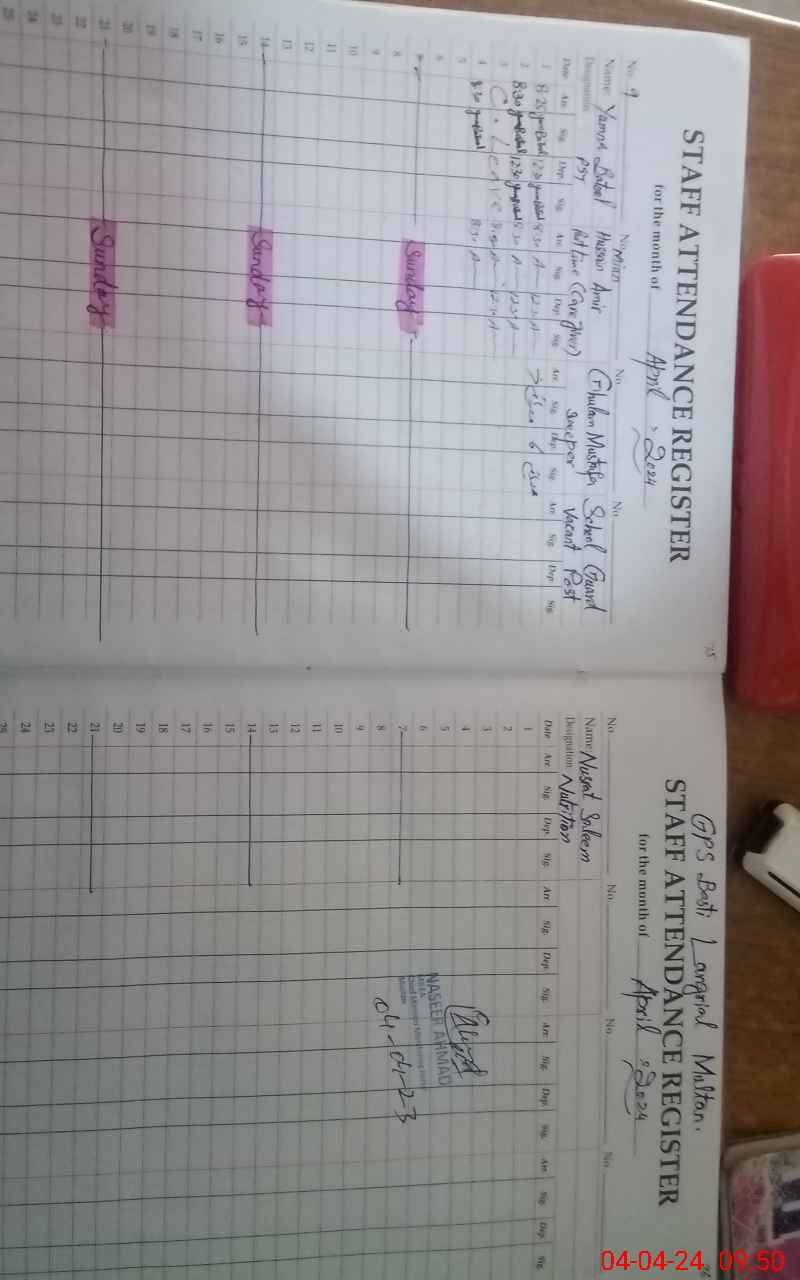 75
STAFF ATTENDANCE REGISTER
for the month of April, 2024
No 9 No No No
Name Yamna Batool Mian Hassan Amir Ghulam Mustafa School Guard
Designation PST Part time (Care giver) Sweeper Vacant Post
Date Arr. Sig. Dep. Sig. Arr. Sig. Dep. Sig. Arr. Sig. Dep. Sig. Arr. Sig. Dep. Sig.
1 8:25 12:30 8:30 A 12:30 A
2 8:30 12:30 8:30 A 12:30 A
3 C. Leave 8:30 A 12:30 A
4 8:30 8:30 A
5
6
7 Sunday
8
9
10
11
12
13
14 Sunday
15
16
17
18
19
20
21 Sunday
22
23
24
25
GPS Basti Langrial Multan.
STAFF ATTENDANCE REGISTER
for the month of April, 2024
No No No No
Name Nusrat Saleem
Designation Nutrition
Date Arr. Sig. Dep. Sig. Arr. Sig. Dep. Sig. Arr. Sig. Dep. Sig. Arr. Sig. Dep. Sig.
1
2
3
4
5
6
7
8
9
10
11
12
13
14
15
16
17
18
19
20
21
22
23
24
25
NASEER AHMAD
MEA
Multan
04-04-23
04-04-24 09:50